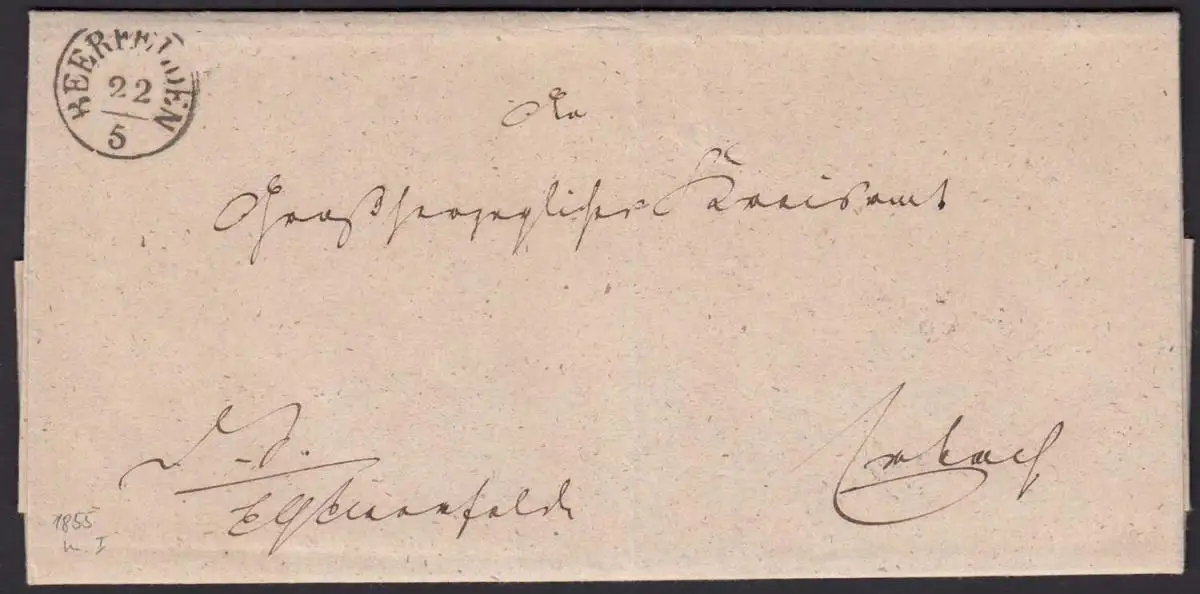 BEERFELDEN
22
5
An
Großherzogliches Kreisamt
D. S.
Erbach
1855